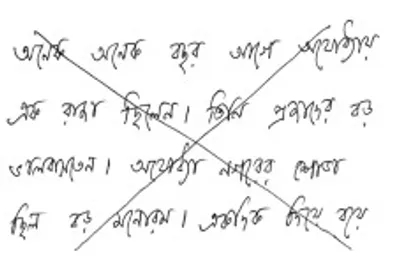 অনেক অনেক বছর আগে অযোধ্যায়
এক রাজা ছিলেন। তিনি প্রজাদের বড়
ভালবাসতেন। অযোধ্যা নগরের শোভা
ছিল বড় মনোরম। একদিক দিয়ে বয়ে